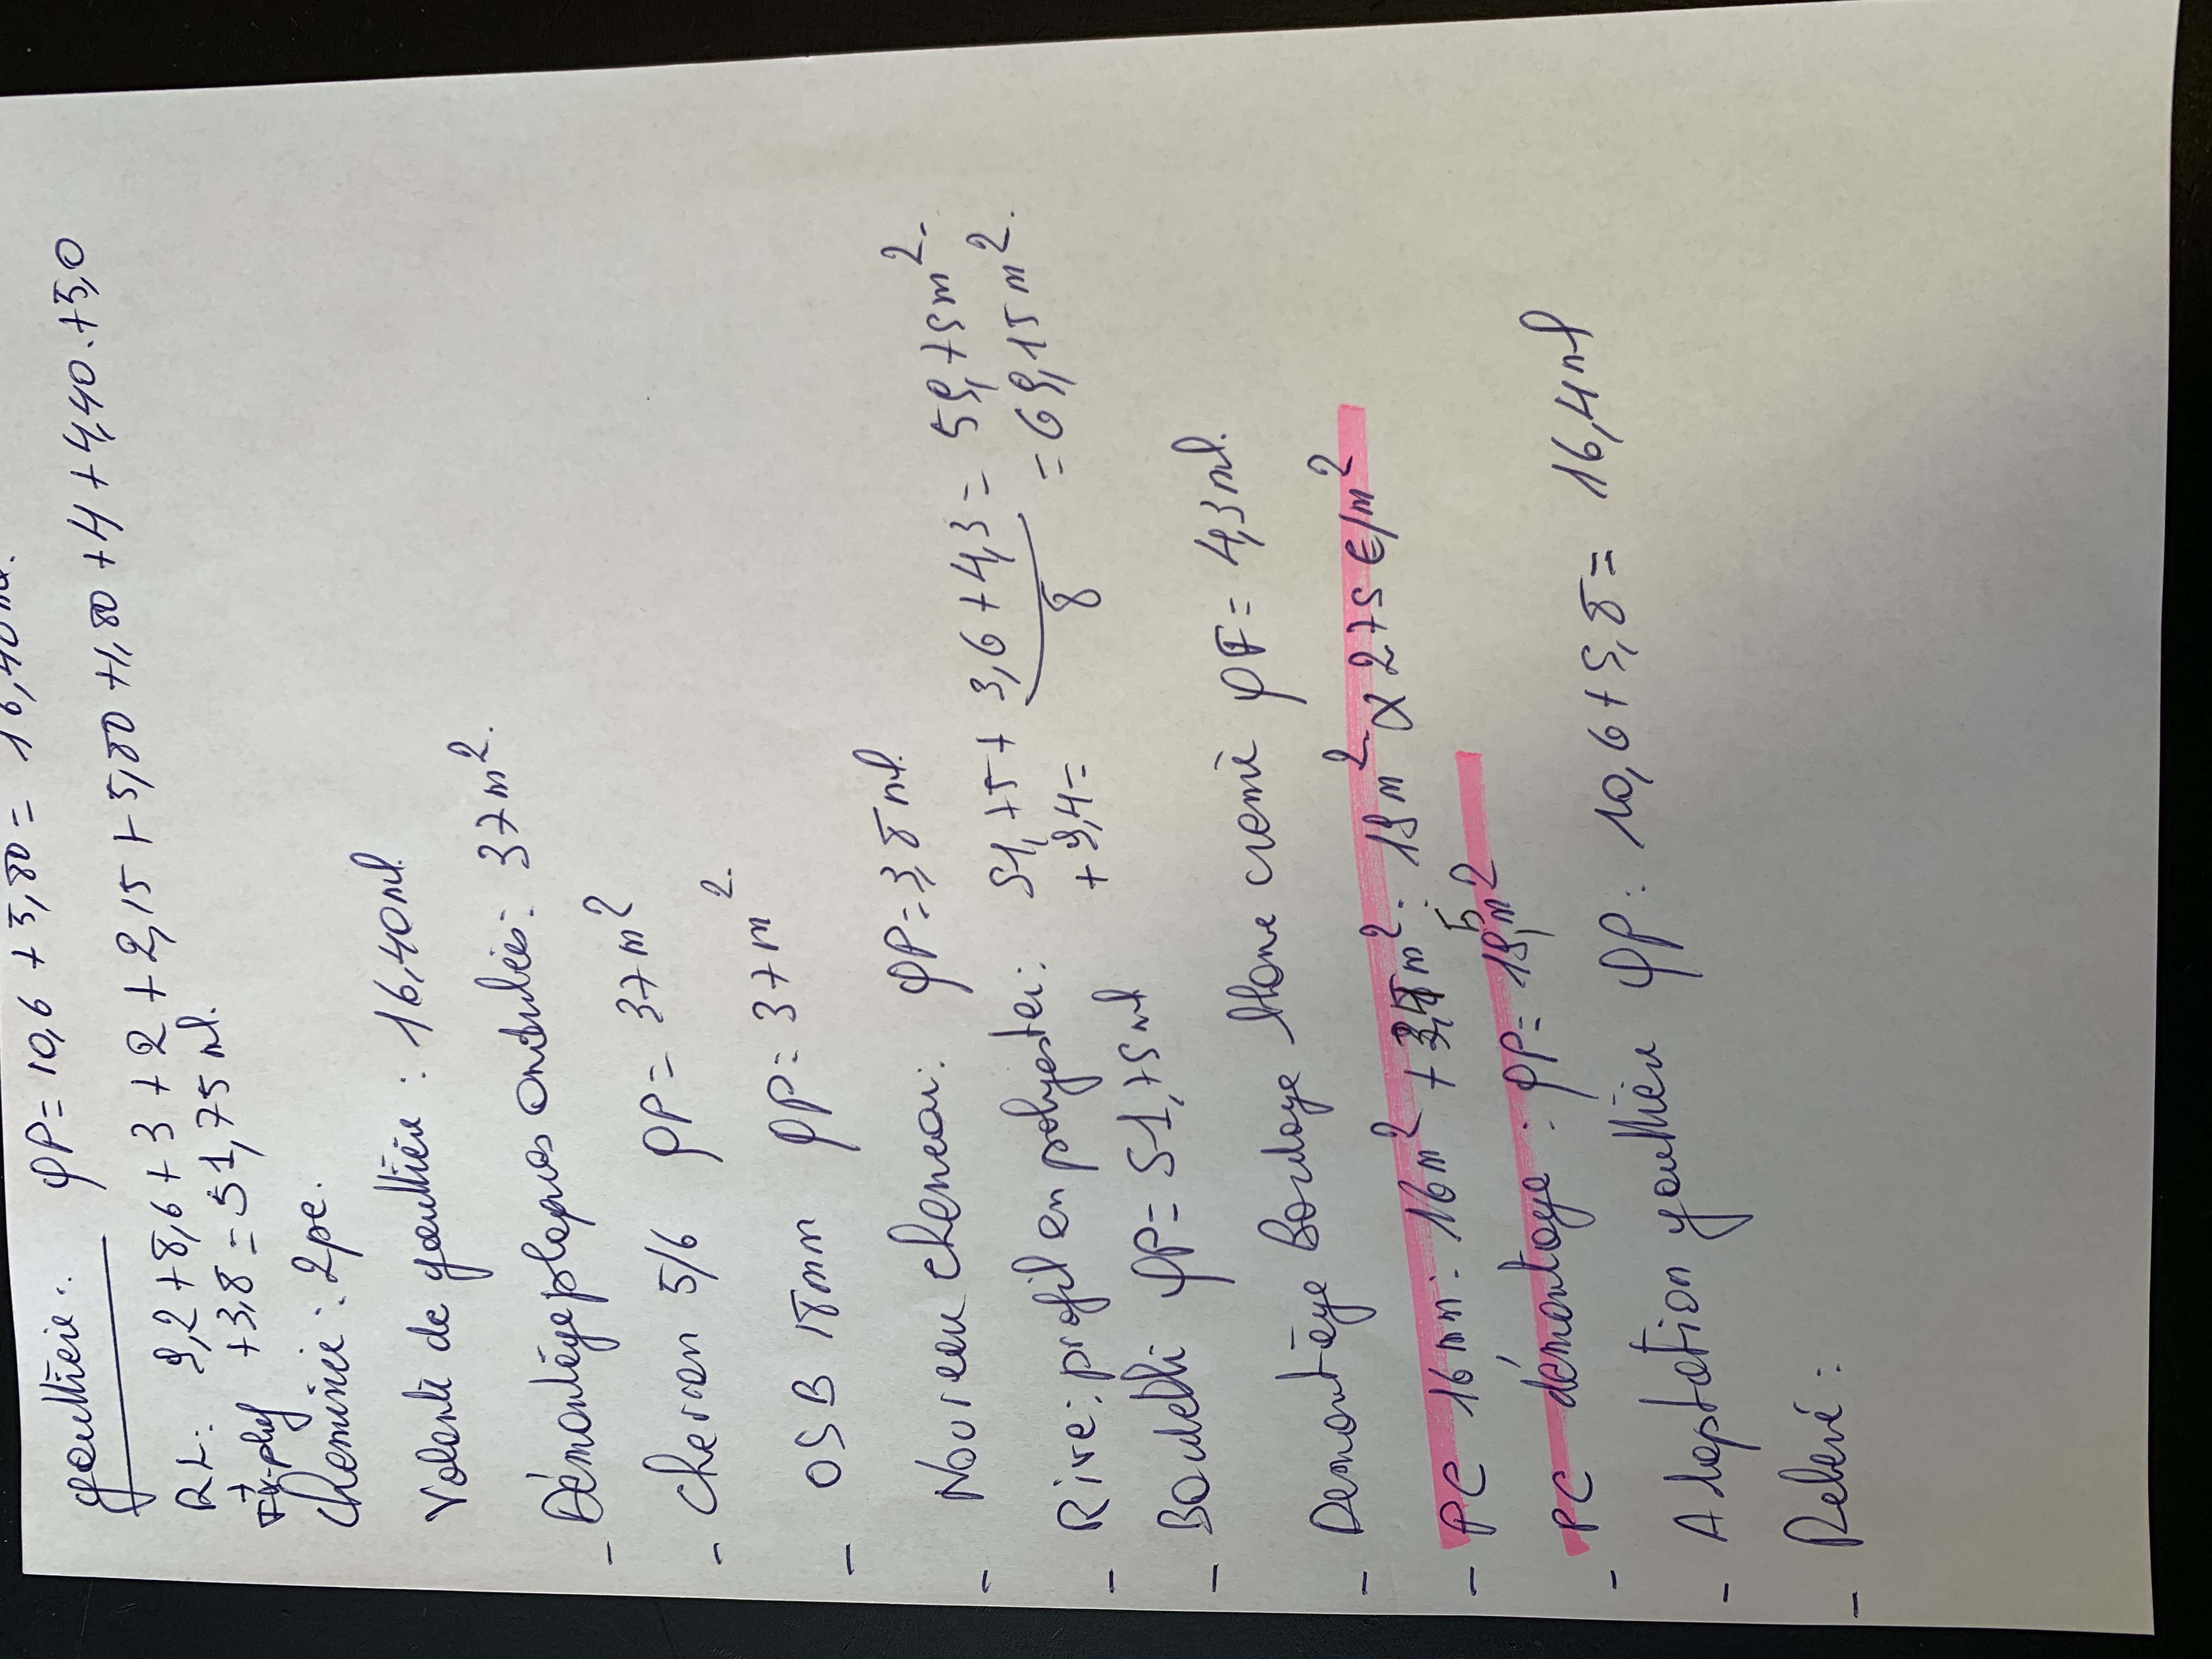 gouttière: QP= 10,6 + 5,80 = 16,40 ml.
RL: 9,2 + 8,6 + 3 + 2 + 2,15 + 5,80 + 1,80 + 4 + 4,40 + 5,0
+3,8 = 51,75 ml.
cheminée: 2pc.
Volante de gouttière: 16,40ml
- Démontège plapas ondulées: 37m2.
- Cherron 5/6 QP= 37m2
- OSB 18mm QP= 37m2.
- Nouveau cheneau: QP=3,8ml.
- Rive: profil en polyester: 51,75 + 3,6 + 4,3 = 59,75m2.
+ 9,4= 8 = 69,15m2.
- Boudebli QP= 51,75ml
- Demontège Bardage blanc crème QT= 4,3ml.
- PC 16mm: 16m2 + 3,5m2: 19m2 x 275€/m2
- PC démontage: QP= 19,5m2
- Adaptation gouttière QP: 10,6+5,8= 16,4ml
- Relevé: